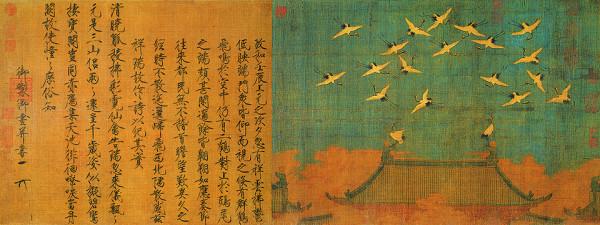 政和壬辰上元之次夕忽有祥雲拂鬱
低映端門衆皆仰而視之倏有群鶴
飛鳴於空中仍有二鶴對止於鴟尾
之端頗甚閑適餘皆翱翔如應奏節
往來都民無不稽首瞻望歎異久之
經時不散迤邐歸飛西北隅散感兹
祥瑞故作詩以紀其實
清曉觚稜拂彩霓仙禽告瑞忽來儀飄飄
元是三山侶兩兩還呈千歲姿似擬碧鸞
棲寶閣豈同赤鴈集天池徘徊嘹唳當丹
闕故使憧憧庶俗知
御製御畫并書